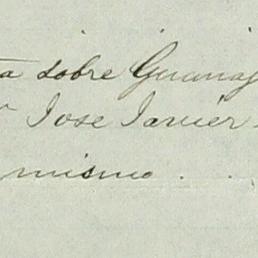 a sobre Guanaj
Jose Javier
mismo . .